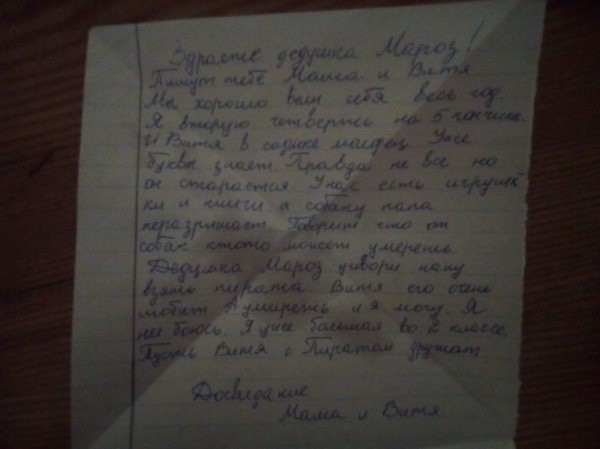 Здрасте дедушка Мароз!
Пишут тебе Маша и Витя
Мы хорошо вели себя весь год
Я вторую четверть на 5 кончила.
И Витя в садике молодец. Уже
буквы знает. Правда не все но
он старается. У нас есть игруш
ки и книги а собаку папа
неразришает. Говорит что от
собак ктото может умереть.
Дедушка Мароз угвори папу
взять пирата. Витя его очень
любит. А умиреть и я могу. Я
не боюсь. Я уже большая во 2 классе.
Пусть Витя с Пиратом дружат.
Досвидание
Маша и Витя.